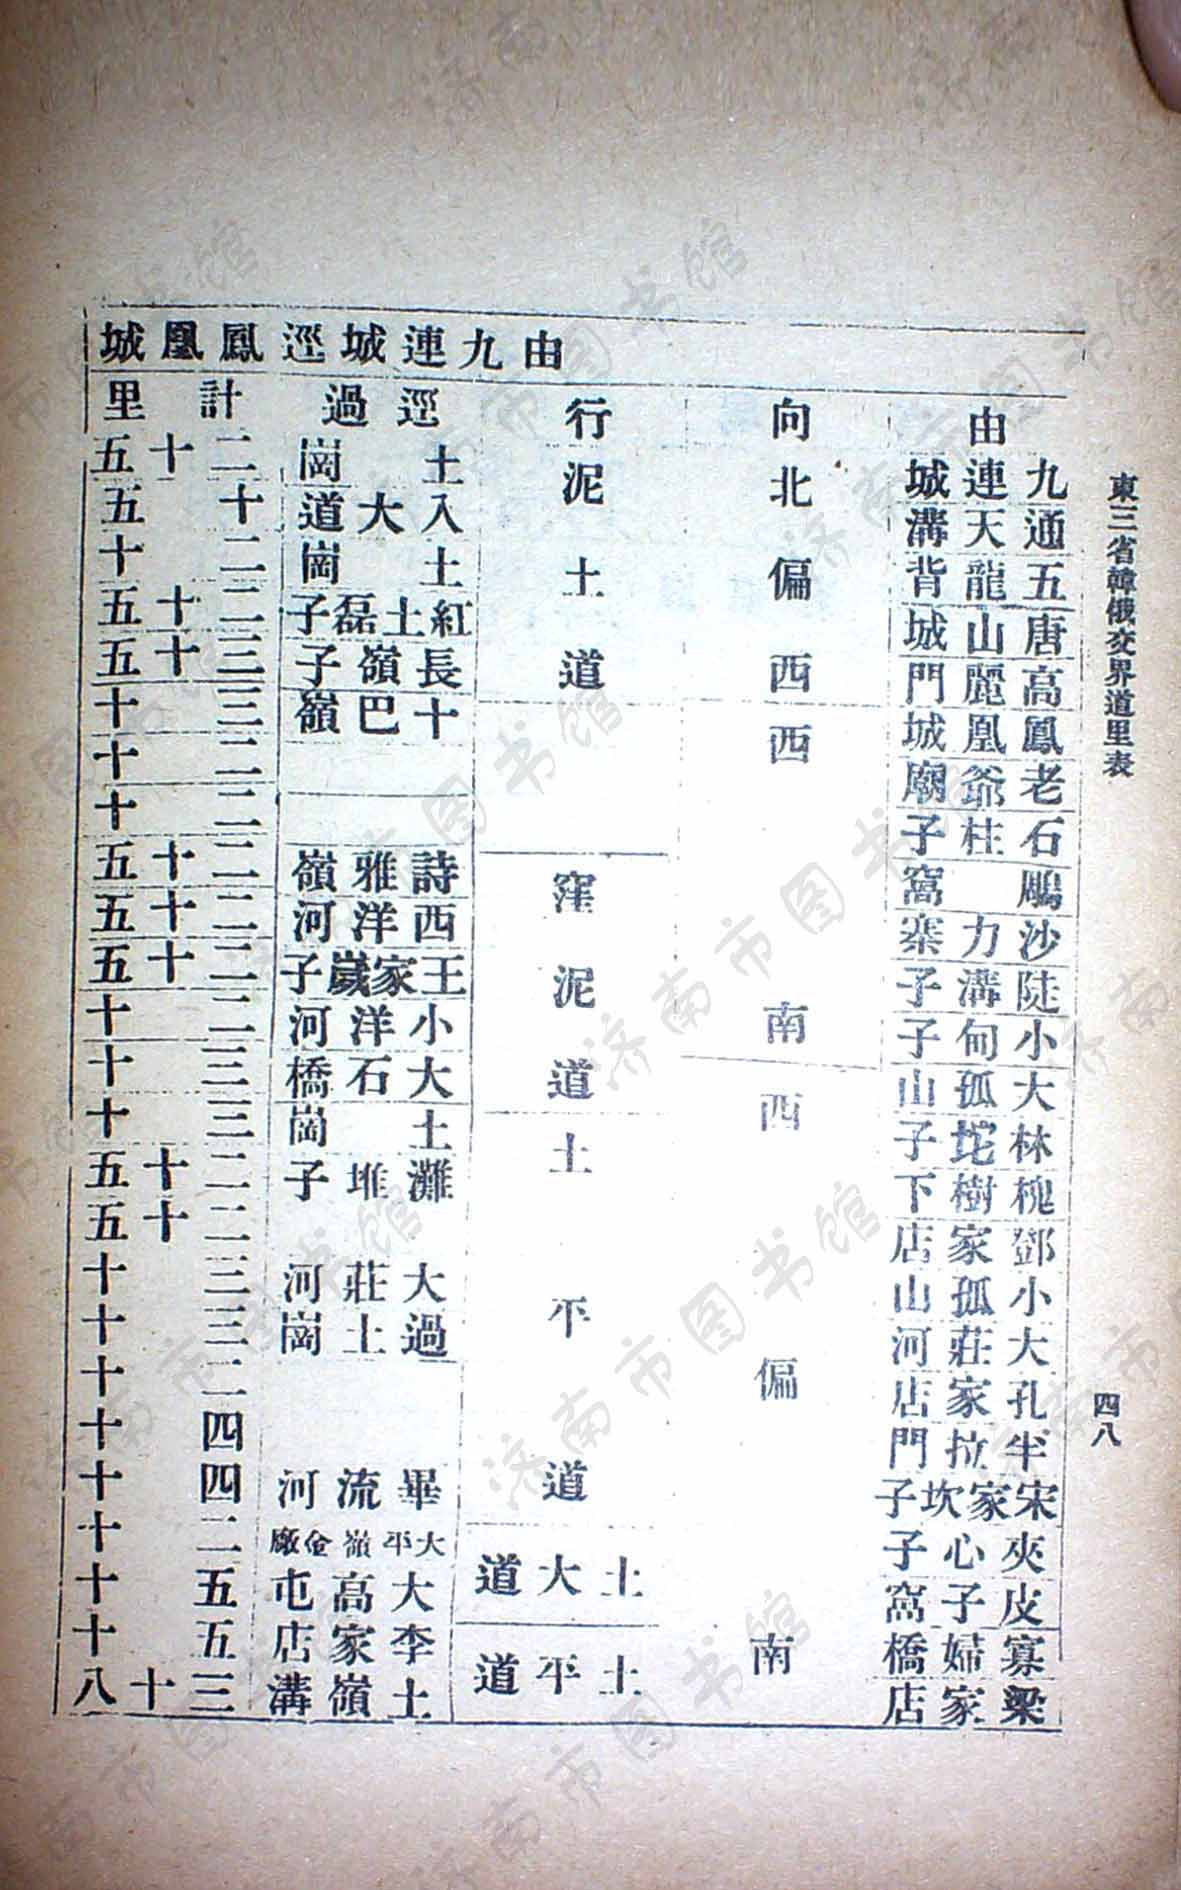 東三省韓俄交界道里表
四八
由九連城逕鳳凰城
由
九連城
通天溝
五龍背
唐山城
高麗門
鳳凰城
老爺廟
石柱子
鵰窩
沙力寨
陡溝子
小甸子
大孤山
林坨子
槐樹下
鄧家店
小孤山
大莊河
孔家店
半拉門
宋家坎子
夾心子
皮子窩
寡婦橋
梁家店
向
北偏西
西南
西偏南
行
泥土道
窪泥道
土平道
土大道
土平道
逕過
土崗
入大道
土崗
紅土磊子
長嶺子
十巴嶺
詩雅嶺
西洋河
王家嵗子
小洋河
大石橋
土崗
灘堆子
大莊河
過土崗
畢流河
大平嶺金廠
大高屯
李家店
土嶺溝
計里
二十五
十五
二十
二十五
三十五
三十
二十
二十
二十五
二十五
二十五
二十
三十
三十
二十五
二十五
三十
三十
二十
四十
四十
二十
五十
五十
三十八
济南市图书馆